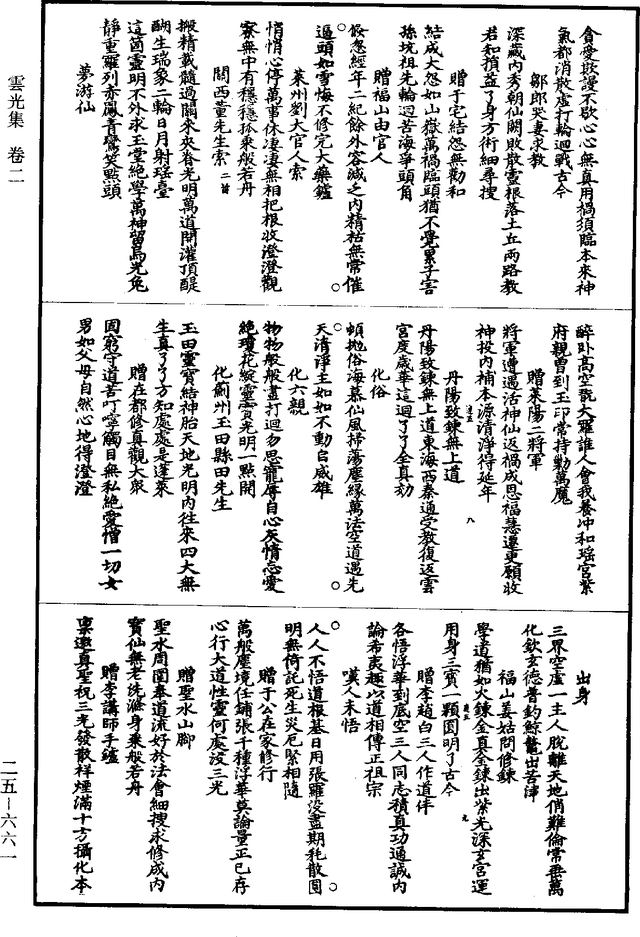 會愛欺謾不歇心心無真用禍須臨本來神
氣都消散虛打輪迴戰古今
鄒郎哭妻求教
深藏內秀朝仙闕敗散靈根落土丘兩路教
君知損益了身方術細尋搜
贈于宅結怨無勸和
結成大怨如山嶽萬禍臨頭猶不覺累子害
孫坑祖先輪迴苦海爭頭角
贈福山由官人
忽經年二紀餘外容減之內精枯無常催
逼頭如雪悔不修完大藥鑪
萊州劉大官人索
悄悄心停萬事休淒淒無相把根收澄澄觀
察無中有穩穩孤乘般若舟
關西董先生索二首
搬精載髓過關來夾脊光明萬道開灌頂醍
醐生瑞象二輪日月射瑤臺
這箇靈明不外求玉堂絕學萬神留烏光兔
靜重羅列赤鳳青鸞笑點頭
夢游仙
醉臥高空翫大羅誰人會我養冲和瑤宮紫
府親曾到玉印常持勅萬魔
贈萊陽二將軍
將軍遭遇活神仙返禍成恩福慧遷更願收
神投內補本源清淨得延年
丹陽致鍊無上道
丹陽致鍊無上道東海西秦通受教復返雲
宮度歲華這迴了了全真劫
化俗
頓拋俗海慕仙風掃蕩塵緣萬法空道遇先
天清淨主如如不動自威雄
化六親
物物般般盡打迴勿思寵辱自心灰情忘愛
絕瓊花綻靈雲光明一點開
化薊州玉田縣田先生
玉田靈寶結神胎天地光明內往來四大無
生真了了方知處處是蓬萊
贈在都修真觀大眾
固窮守道苦叮嚀觸目無私絕愛憎一切女
男如父母自然心地得澄澄
出身
三界空虛一主人脫離天地俏難倫常垂萬
化欽玄德普釣鯨鼇出苦津
福山姜姑問修鍊
學道猶如火鍊金真金鍊出紫光深玄宮運
用身三寶一顆圓明了古今
贈李趙白三人作道伴
各悟浮華到底空三人同志積真功通誠內
論希夷趣以道相傳正祖宗
嘆人未悟
人人不悟道根基日用張羅沒盡期秏散圓
明無倚託死生災厄緊相隨
贈于公在家修行
萬般塵境任鋪張千種浮華莫論量正已存
心行大道性靈何處沒三光
贈聖水山腳
聖水周圍奉道流好於法會細搜求修成內
寶仙無老洗滌身乘般若舟
贈李講師手鑪
稟邀真聖祝三光發散祥煙滿十方攝化本
雲光集 卷二
二五－六六一